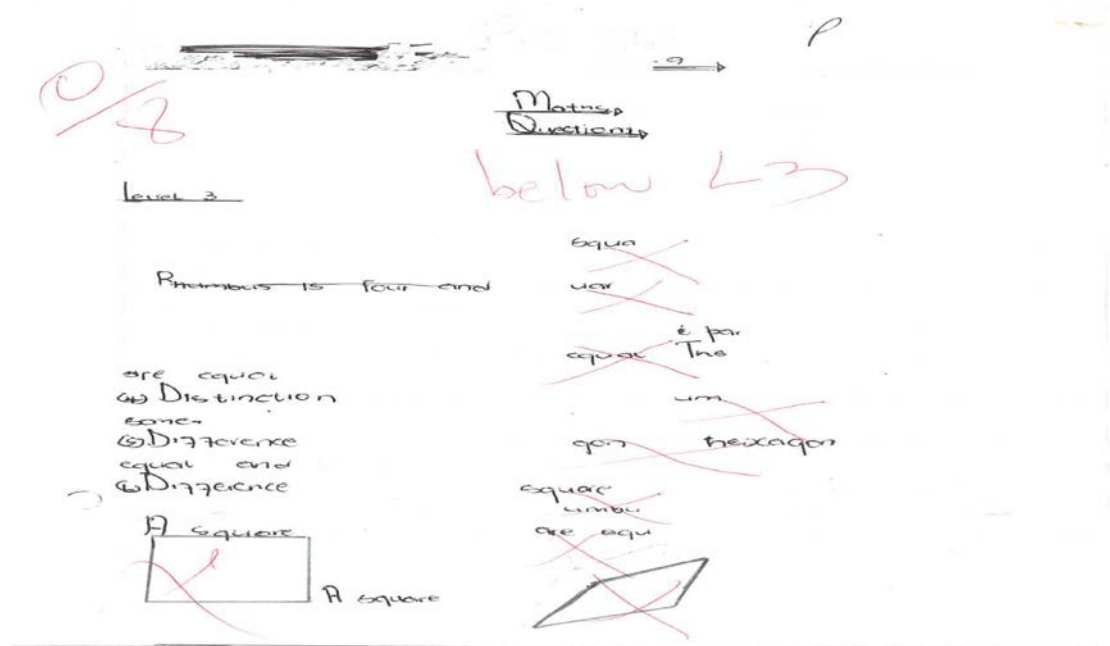 P
.9
0/8
Maths
Directions
below L3
Level 3
squa
Rhumbus is four and uar
& par
equal The
are equal
(4) Distinction um
some
(5) Difference gon heixagon
equal and
(6) Difference square
umbu
A square are equ
A square